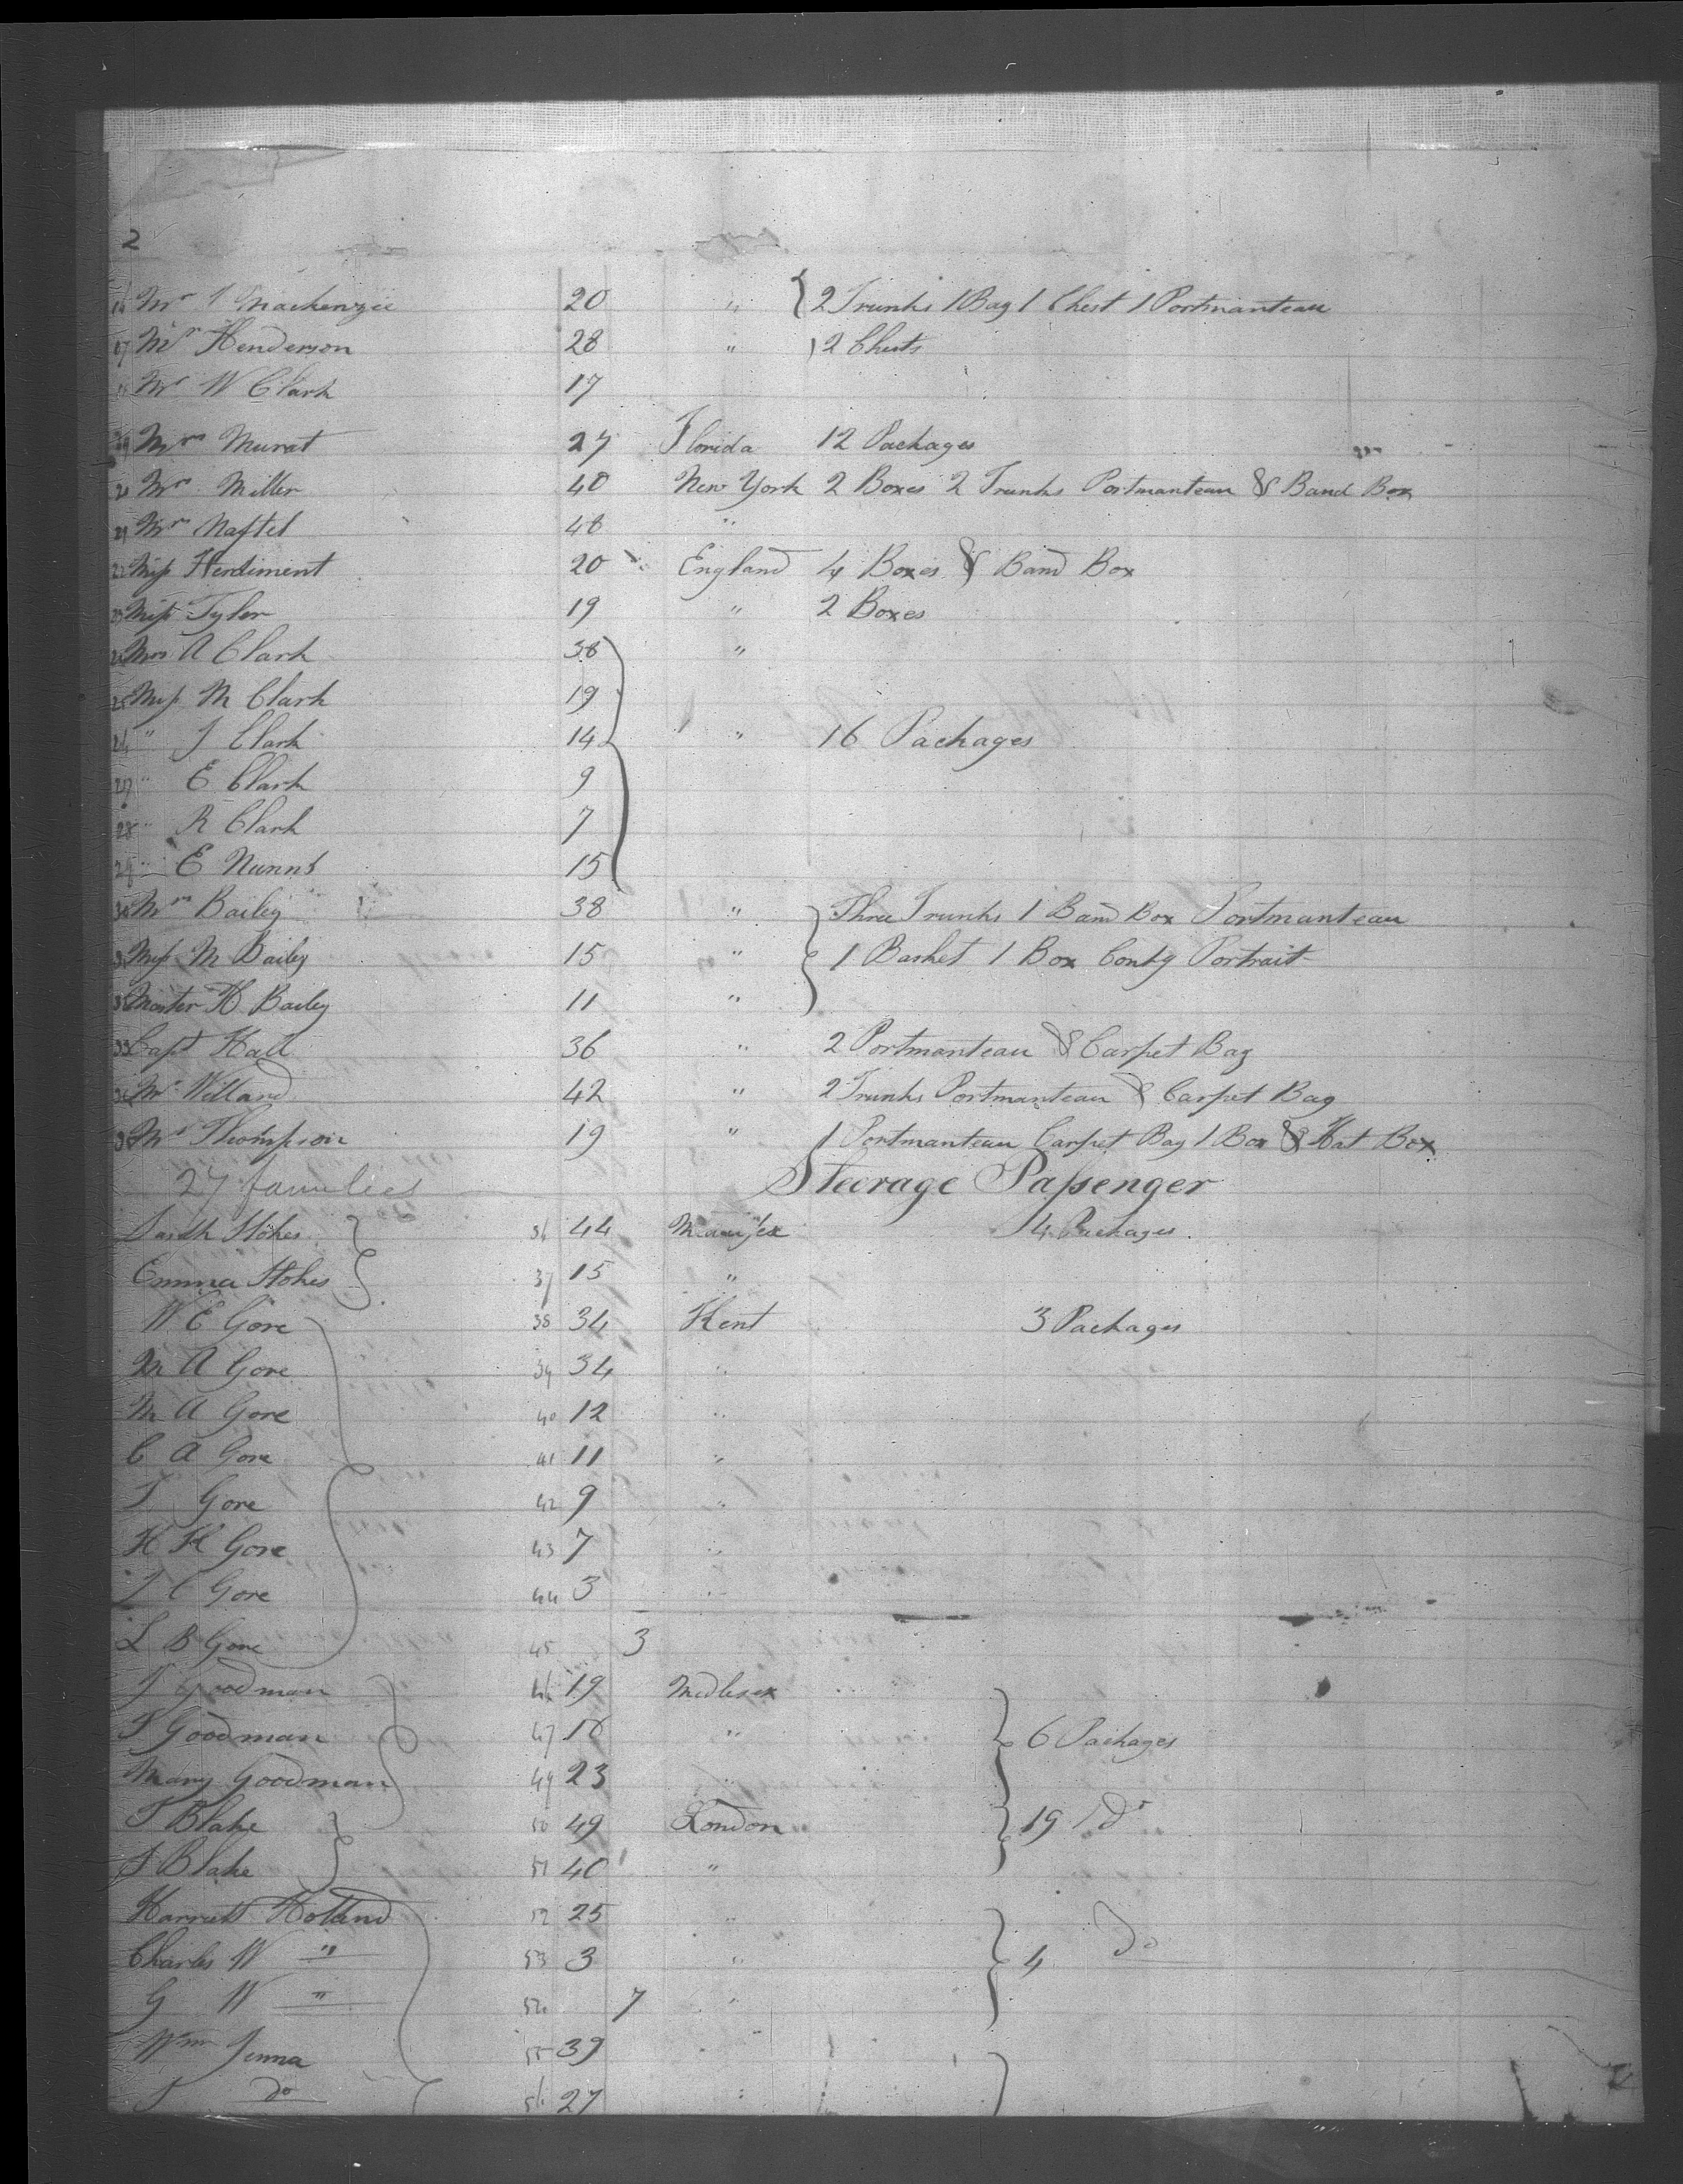 2
Mr Mackenzie 20 " 2 Trunks 1 Bag 1 Chest 1 Portmanteau
17 Mr Henderson 28 " 2 Chests
Mr W Clark 17
Mrs Murat 27 Florida 12 Packages
20 Mrs Miller 40 New York 2 Boxes 2 Trunks Portmanteau & Band Box
21 Mrs Naftel 48 "
22 Miss Herdiment 20 England 4 Boxes & Band Box
23 Miss Tyler 19 " 2 Boxes
24 Mrs A Clark 38 "
25 Miss M Clark 19
26 " J Clark 14 " 16 Packages
27 " E Clark 9
28 " R Clark 7
29 " E Nunns 15
30 Mrs Bailey 38 " Three Trunks 1 Band Box Portmanteau
31 Miss M Bailey 15 " 1 Basket 1 Box Contg Portrait
32 Master H Bailey 11 "
33 Capt Hall 36 " 2 Portmanteau & Carpet Bag
34 Mr Willand 42 " 2 Trunks Portmanteau & Carpet Bag
35 Mr Thompson 19 " 1 Portmanteau Carpet Bag 1 Box & Hat Box
27 families Steerage Passenger
Sarah Stokes 36 44 4 Packages
Emma Stokes 37 15 "
W E Gore 38 34 Kent 3 Packages
M A Gore 39 34 "
M A Gore 40 12 "
C A Gore 41 11 "
T Gore 42 9 "
H H Gore 43 7 "
J C Gore 44 3 "
L B Gore 45 3
J Goodman 46 19 Midlesex
T Goodman 47 18 " 6 Packages
Mary Goodman 49 23 "
T Blake 50 49 London 19 Do
J Blake 51 40 "
Harriett Holland 52 25 "
Charles W " 53 3 " 4 Do
G W " 54 7 "
Wm Jenna 55 39 "
J do 56 27 "